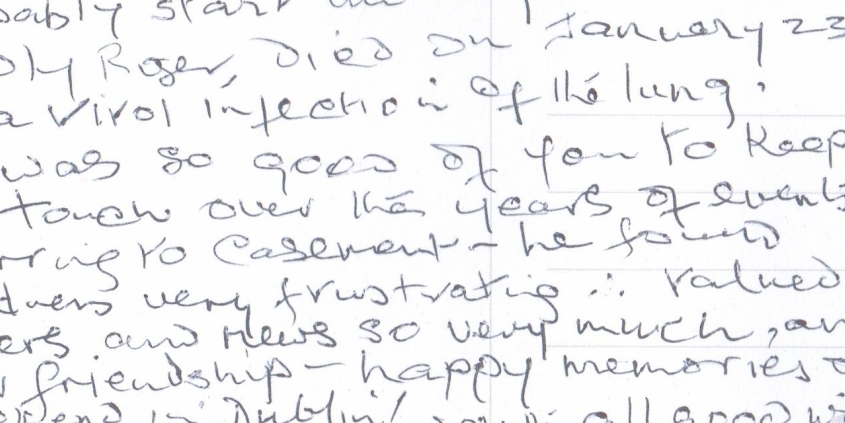 ably start
Roger, Died on January 23
a virol infection of the lung.
was so good of you to keep
touch over the years of events
rring to Casement - he found
very frustrating ∴ valued
ers and news so very much, an
friendship - happy memories o
in Dublin! all good wi